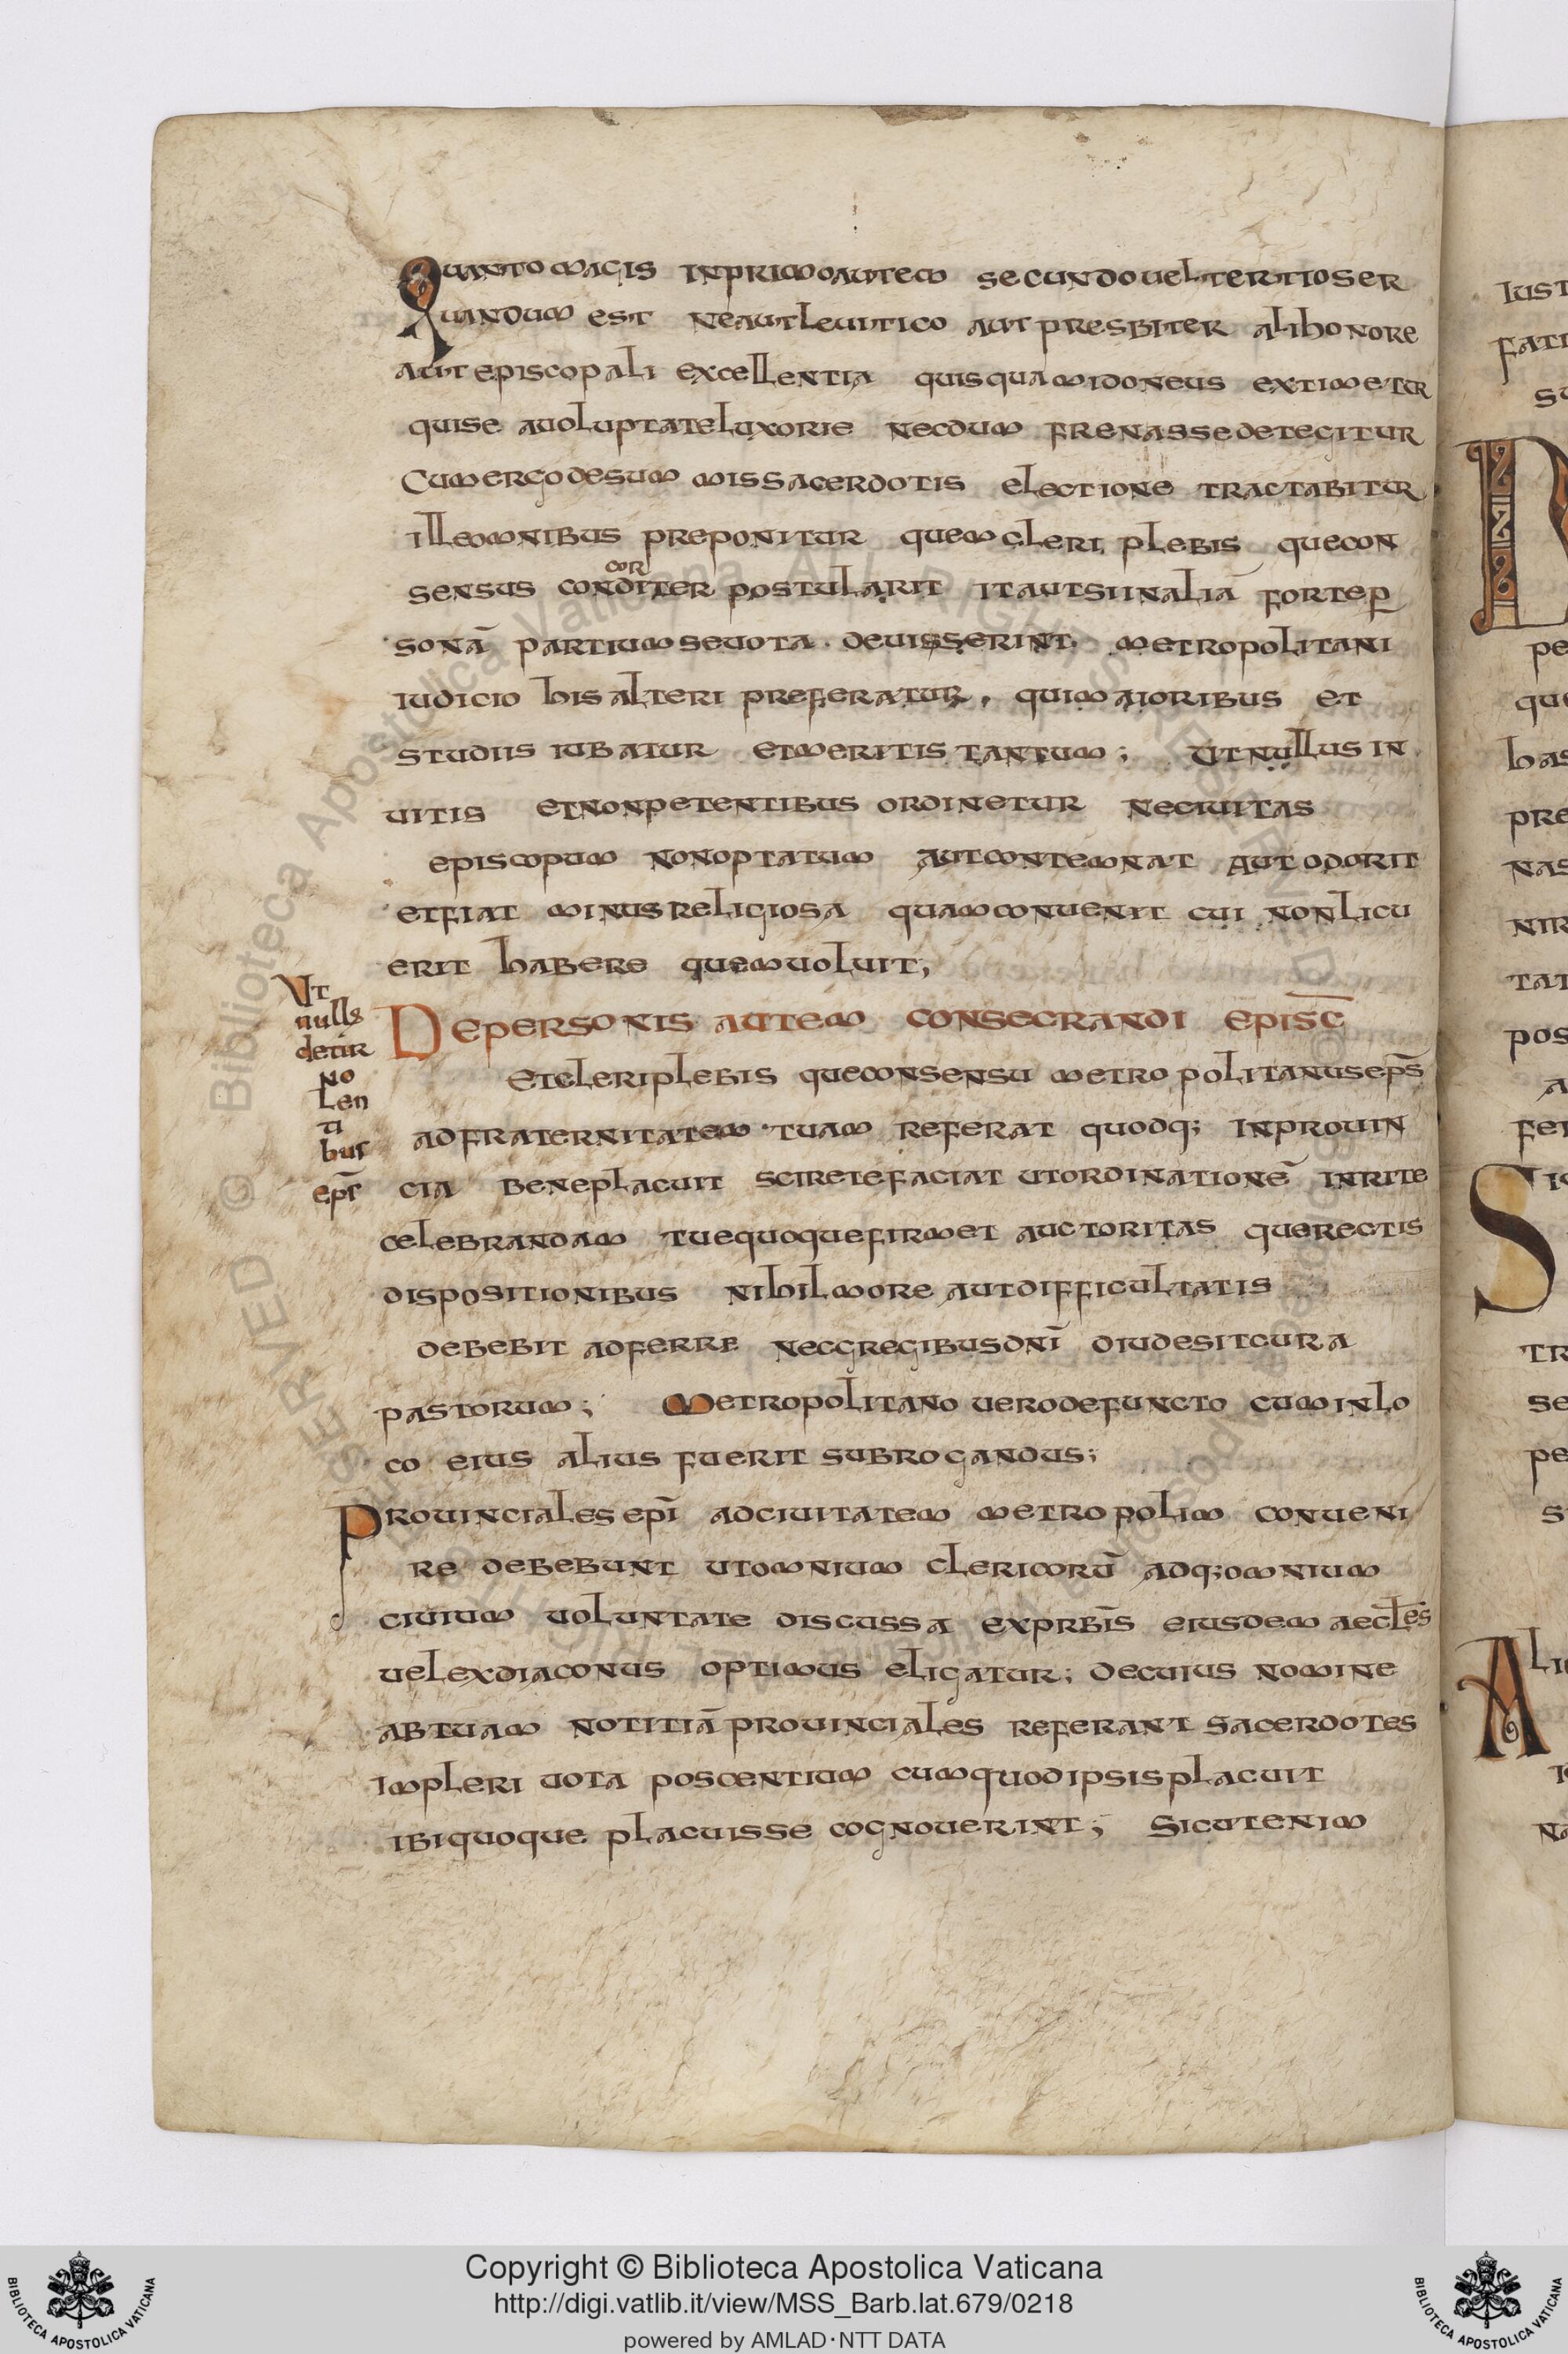 Quanto magis inprimo autem secundo uel tertio ser
uandum est neaut leuitico aut presbiter alihonore
aut episcopali excellentia quisquam idoneus extimetur
quise auoluptate luxorie necdum frenasse detegitur
Cum ergo desum mis sacerdotis electione tractabitur
ille omnibus preponitur quem cleri plebis quecon
cor
sensus conditer postularit itaut si inaliā forte p̱
sonā partium se uota deuisserint metropolitani
iudicio his alteri preferatur, qui maioribus et
studiis iubatur et meritis tantum; Ut nullus in
uitis et non petentibus ordinetur neciuitas
episcopum non optatum aut contemnat aut odorit
et fiat minus religiosa quam conuenit cui non licu
erit habere quem uoluit;
Ut
nulls
detir
no
len
ti
bus
ep̄s
De personis autem consecrandi episc̄
Et cleri plebis que consensu metropolitanus ep̄s
ad fraternitatem tuam referat quodq; inprouin
cia bene placuit scire te faciat ut ordinationē inrite
celebrandam tue quoque firmet auctoritas que rectis
dispositionibus nihil more aut difficultatis
debebit adferre nec gregibus dn̄i diu desit cura
pastorum; Metropolitano uero defuncto cum inlo
co eius alius fuerit subrogandus;
Prouinciales ep̄i ad ciuitatem metropolim conueni
re debebunt ut omnium clericorū adq; omnium
ciuium uoluntate discussa ex prb̄is eiusdem aecles̄
uel ex diaconus optimus eligatur; de cuius nomine
ab tuam notitiā prouinciales referant sacerdotes
impleri uota poscentium cum quod ipsis placuit
ibi quoque placuisse cognouerint; Sicut enim
iust
fati
su
pe
que
has
pre
nas
nir
tat
pos
a
fer
Sic
tr
se
pe
s
Ali
na
Copyright © Biblioteca Apostolica Vaticana
http://digi.vatlib.it/view/MSS_Barb.lat.679/0218
powered by AMLAD·NTT DATA
BIBLIOTECA APOSTOLICA VATICANA
BIBLIOTECA APOSTOLICA VATICANA